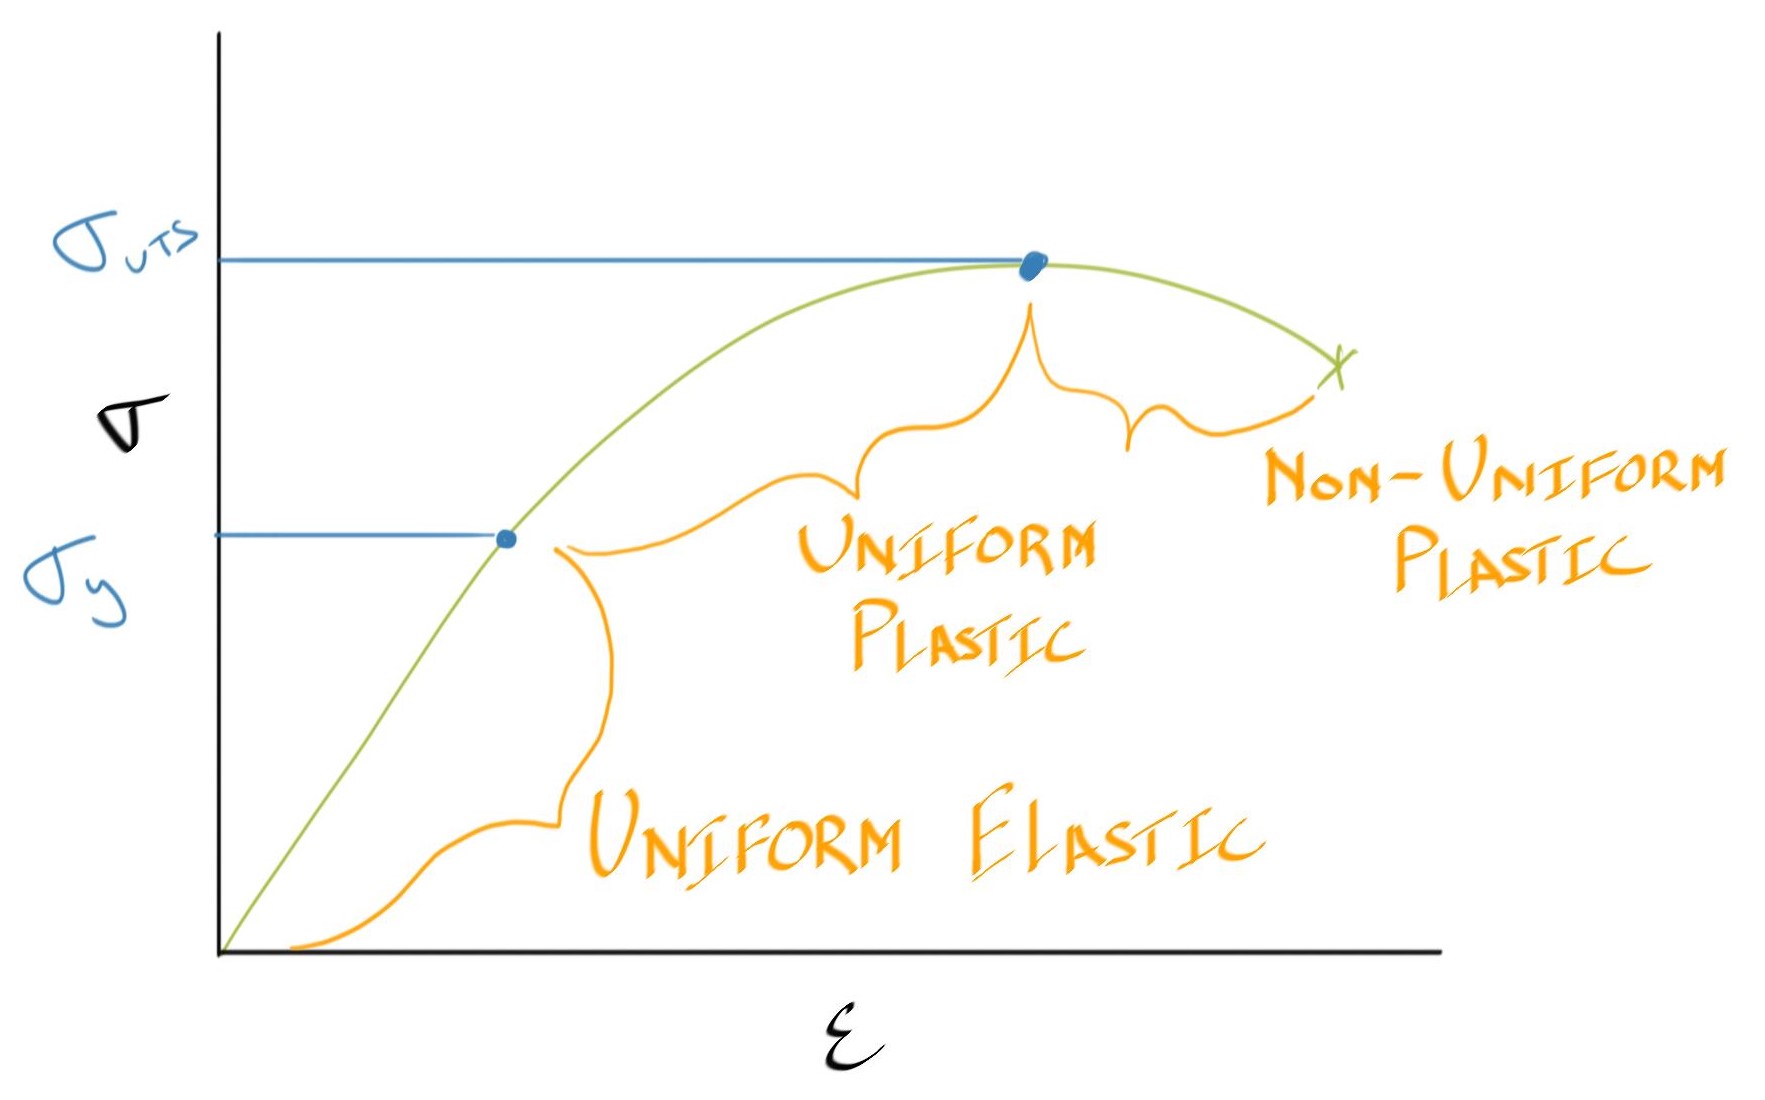 σUTS
σ
σy
NON-UNIFORM
PLASTIC
UNIFORM
PLASTIC
UNIFORM ELASTIC
ε